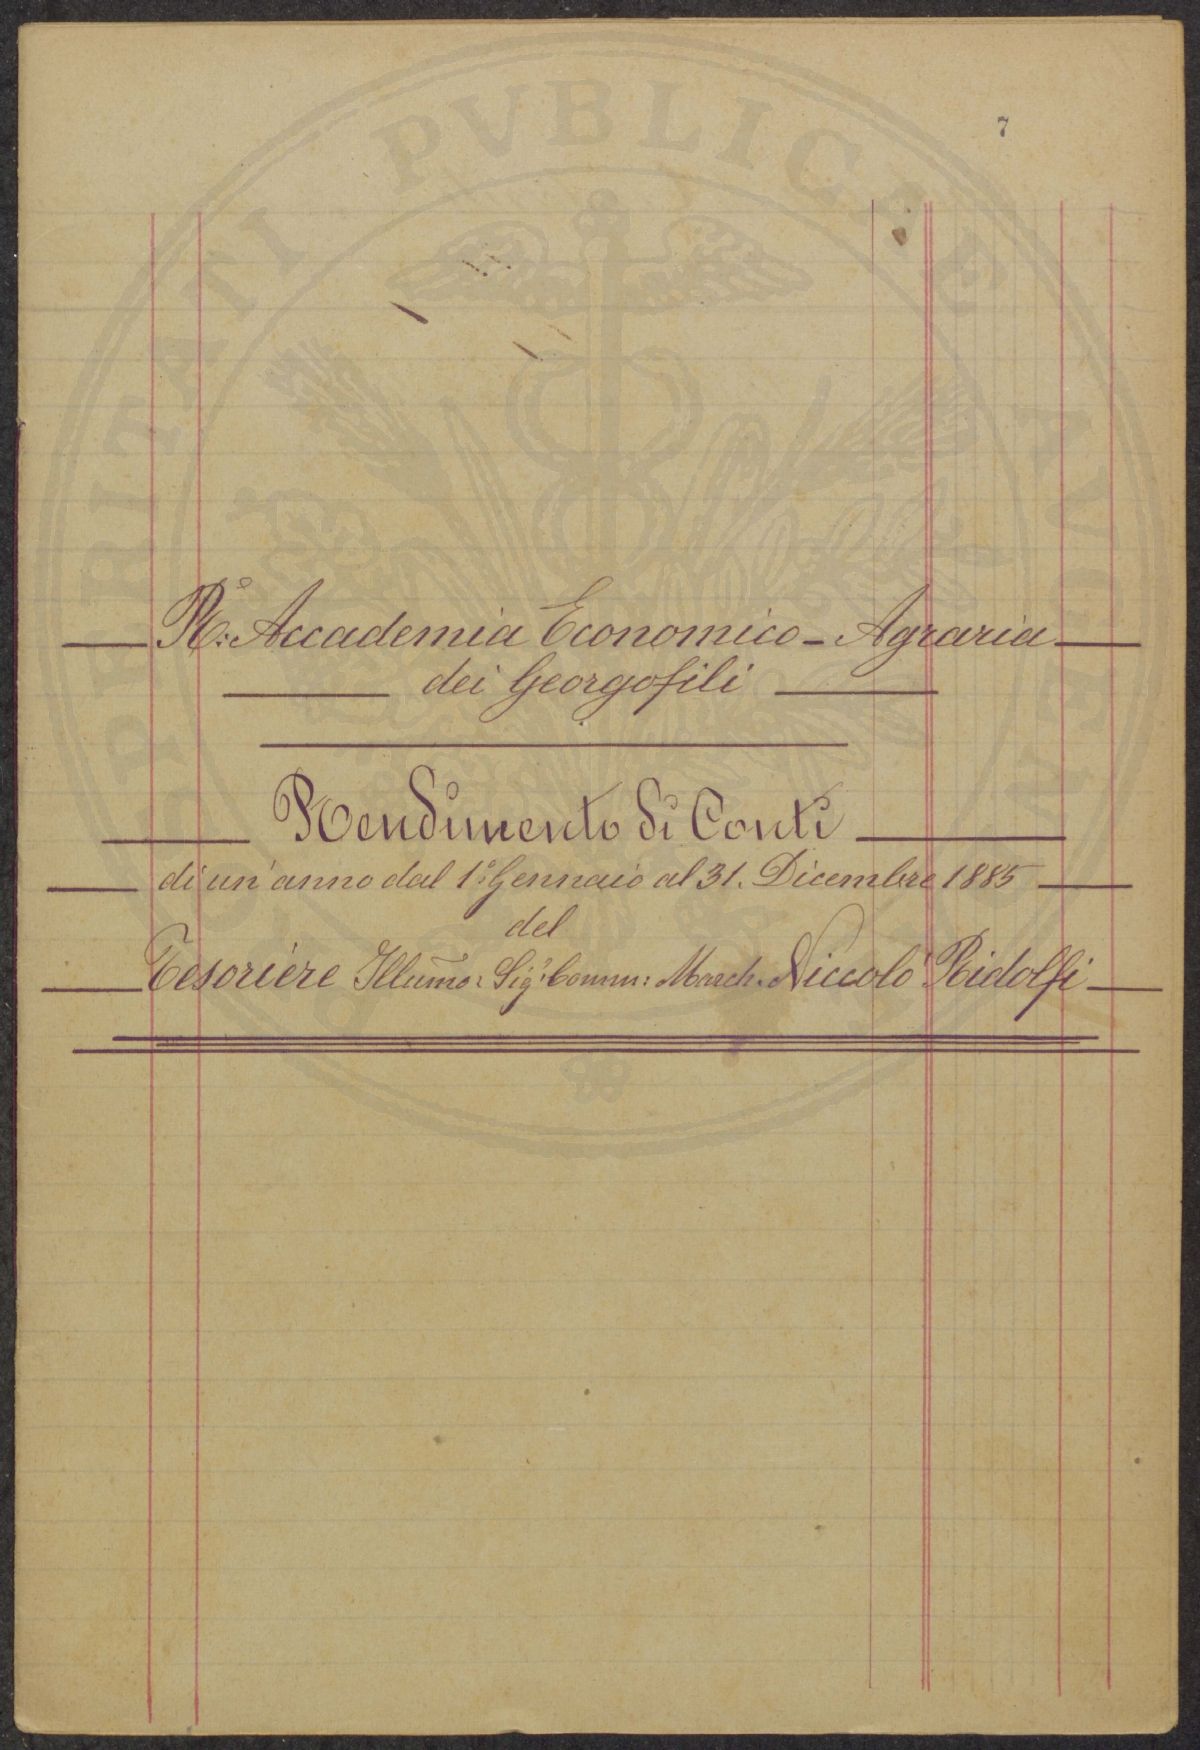 7
R.ª Accademia Economico-Agraria
dei Georgofili
Rendimento di Conti
di un'anno dal 1.º Gennaio al 31. Dicembre 1885
del
Tesoriere Illumo: Sig.r Comm: March. Niccolò Ridolfi
PVBLICAE